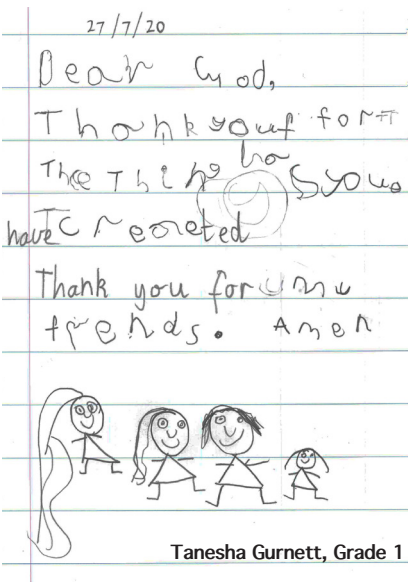 27/7/20
Dear God,
Thank you for
The Things you
have Creoeted
Thank you for my
friends. Amen
Tanesha Gurnett, Grade 1